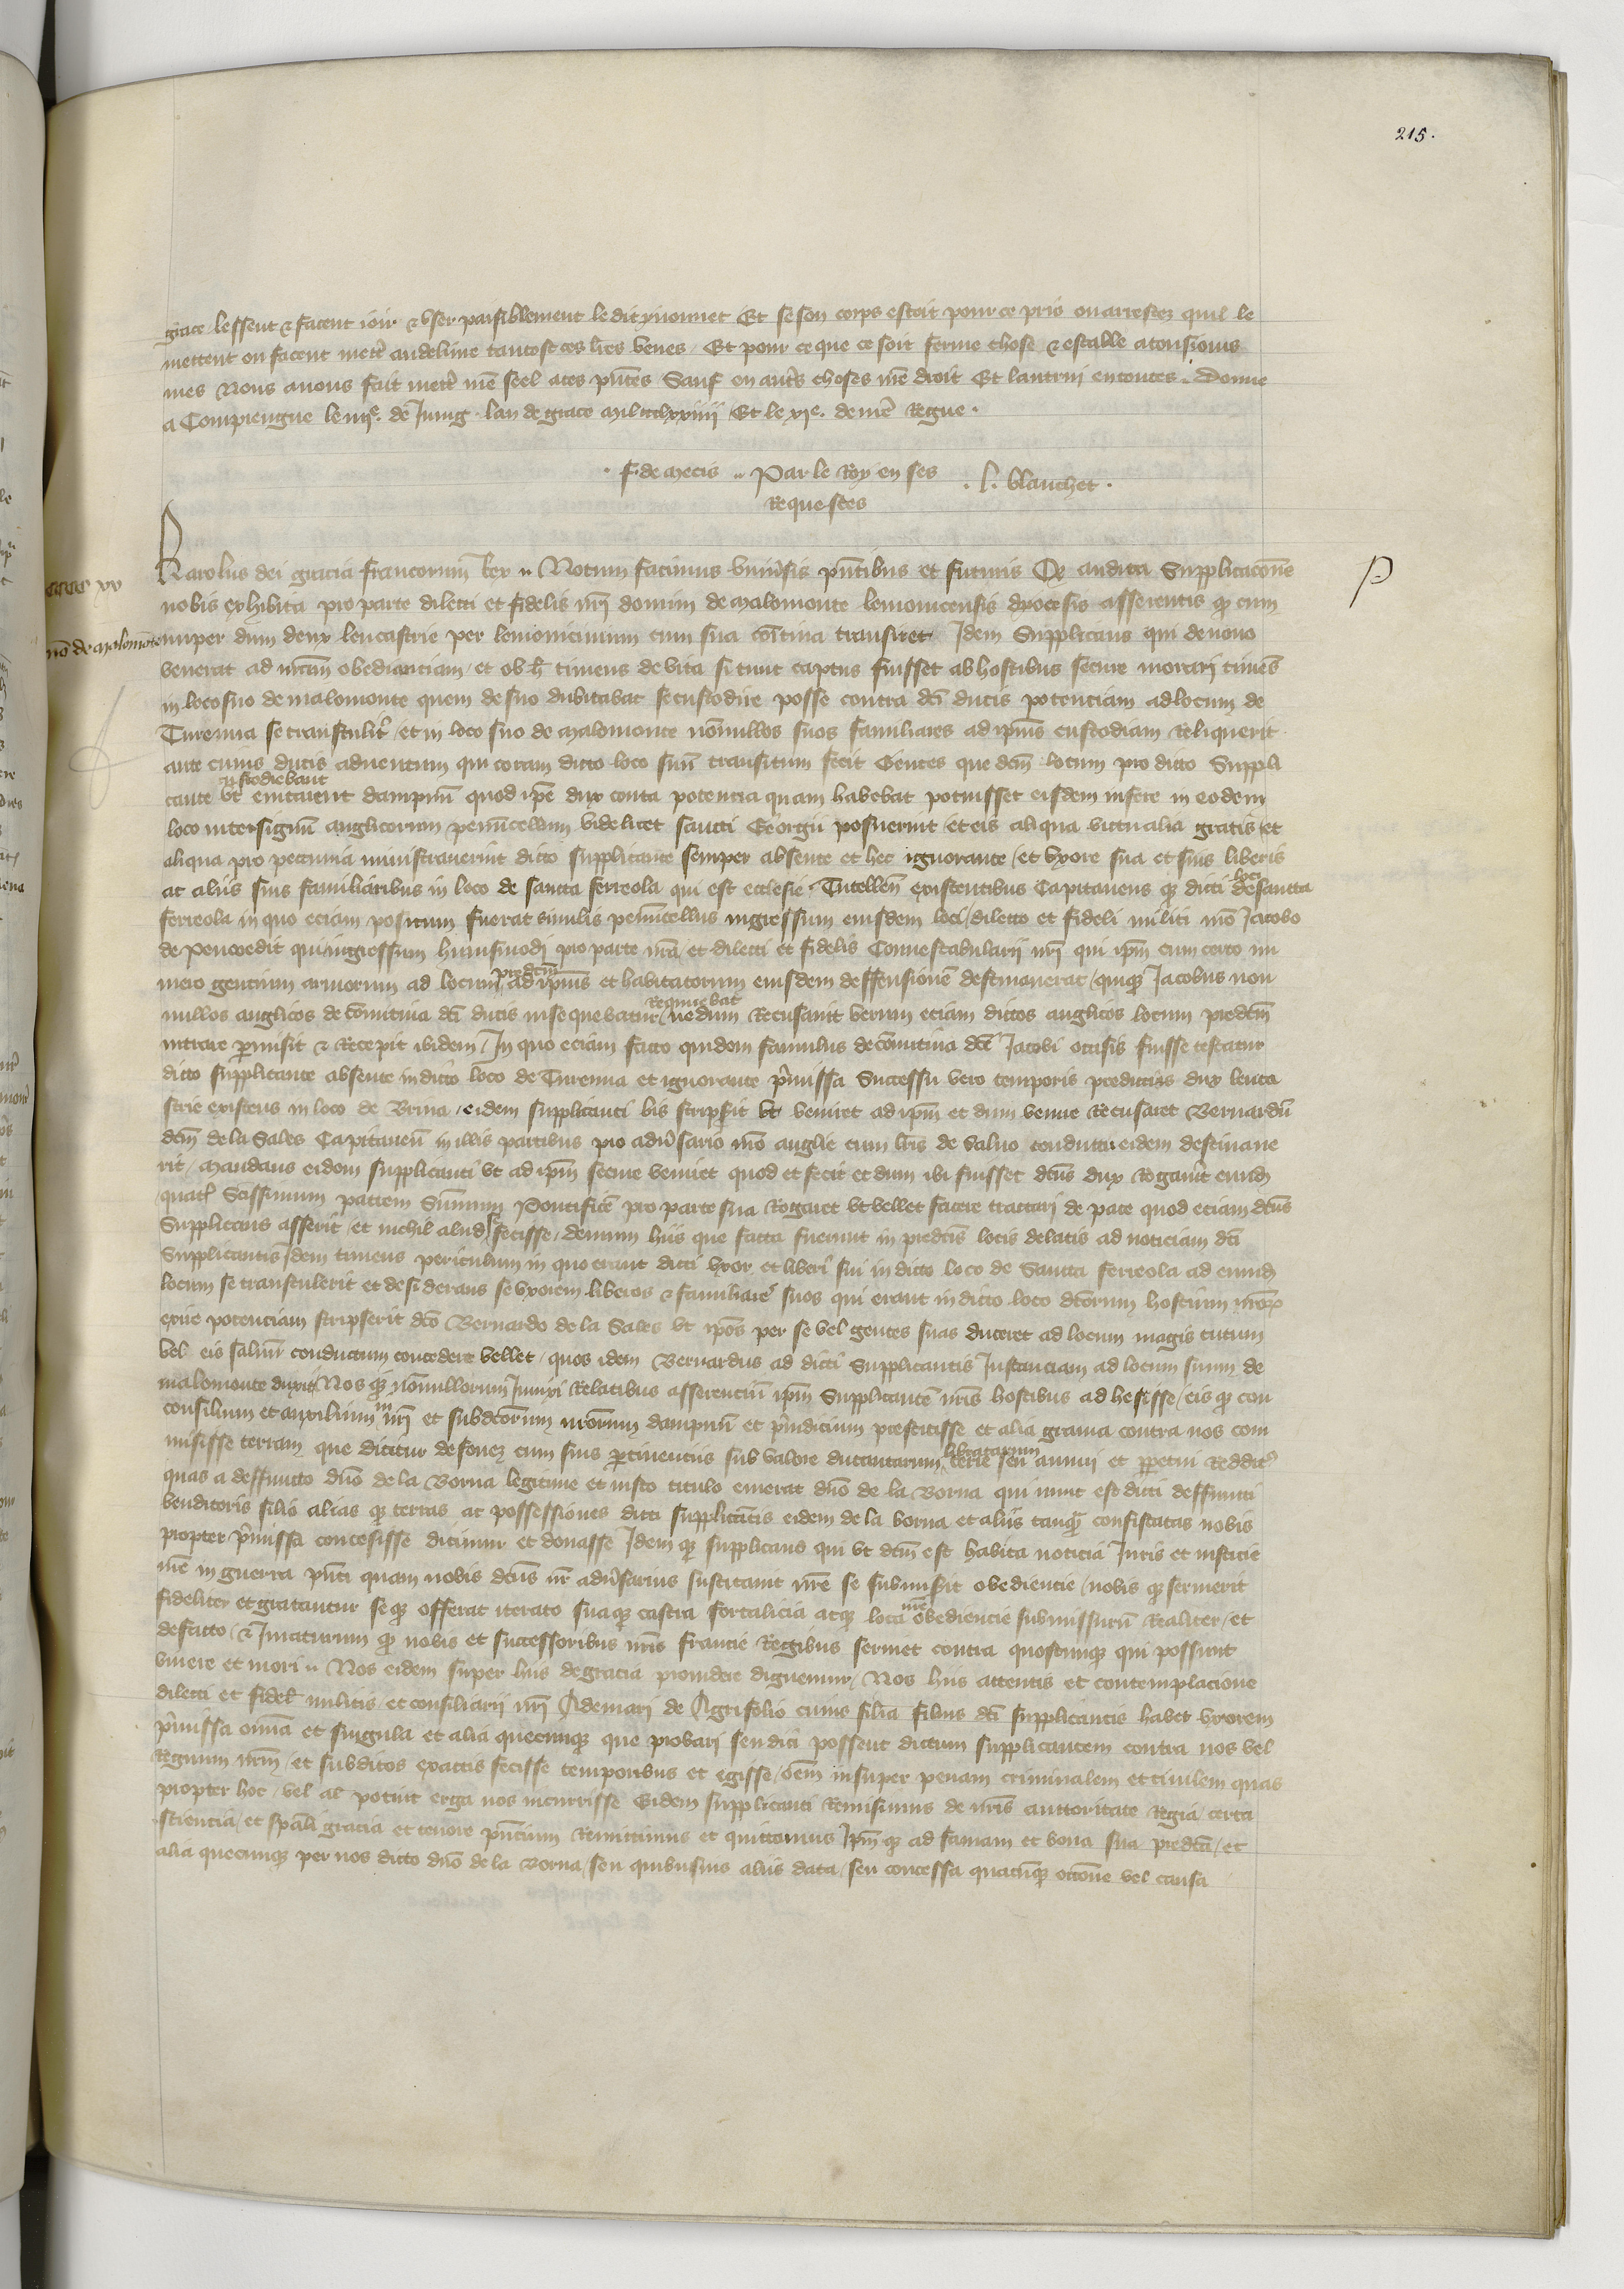 215.
grace lessent & facent ioir & vser paisiblement ledit ynonnet Et se son corps estoit pour ce pris ou arrestez quil le
mettent ou facent mett' au deliure tantost ces lres veues. Et pour ce que ce soit ferme chose & estable a tousiours
mes Nous auons fait mett' nre seel a ces pntes Sauf en autrs choses nre droit Et lautrui en toutes. Donne
a Compiengne le de Juing lan de grace mil ccclxxiiii Et le xie. de nre Regne.
. f. de Mecis .. Par le Roy en ses . J. blanchet .
Requestes
cccc xv
Karolus dei gracia francorum Rex .. Notum facimus vniusis pntibus et futuris Qz audita Supplicacone
p
nobis exhibita pro parte dilecti et fidelis nri domini de Malomonte lemouicensis dyocesis asserentis qz cum
nuper dum dux lencastrie per lemouicinium cum sua comitiua transiret Idem Supplicans qui de nouo
dno de Malomonte
venerat ad nram obedienciam et ob h timens de vita si tunc captus fuisset ab hostibus secure morari timens
in loco suo de malomonte quem de suo dubitabat se custodire posse contra dci ducis potenciam ad locum de
Turenna se transtulit et in loco suo de Malomonte nonnullos suos familiares ad ipius custodiam Reliquerit
ante cuius ducis aduentum qui coram dicto loco suu transitum fecit Gentes que dcm locum pro dicto Suppli
custodiebant
cante vt euitarent dampnu quod ipe dux conta potencia quam habebat potuisset eisdem inferre in eodem
loco intersignu anglicorum penuncellum videlicet sancti Georgii posuerint et eis aliqua victualia gratis et
aliqua pro pecunia ministrauerint dicto supplicante semper absente et hec ignorante / et vxore sua et suis liberis
ac aliis suis familiaribus in loco de sancta ferreola qui est ecclesie Tutellen existentibus Capitaneus qz dicti loci de sancta
ferreola in quo eciam positum fuerat similis penuncellus ingressum eiusdem loci / dilecto et fideli militi nro Jacobo
de Pencoedit qui ingressum huiusmodi pro parte nra et dilecti et fidelis Connestabularii nri qui ipm cum certo nu
mero gencium armorum ad locum predcm ad ipius et habitatorum eiusdem deffensione destinauerat / quiqz Jacobus non
nullos anglicos de comitiua dci ducis insequebatur Requirebat nedum Recusauit verum eciam dictos anglicos locum predcm
intrare pmisit & Recepit ibidem / In quo eciam facto quidem famulus de comitiua dci Jacobi occisus fuisse testatur
dicto supplicante absente in dicto loco de Turenna et ignorante pmissa Successu vero temporis predictus dux lenca
strie existens in loco de Briua / eidem supplicanti bis scripsit vt veniret ad ipm et dum venire Recusaret Bernardu
dcm de la Sales Capitaneu in illis partibus pro adusario nro anglie cum lris de saluo conductu eidem destinaue
rit / Mandans eidem supplicanti vt ad ipm secure veniret quod et fecit et dum ibi fuisset dcus dux Rogauit eund
quatz Scissimum patrem Summum Pontifice pro parte sua Rogaret vt vellet facere tractari de pace quod eciam dcus
Supplicans asserit et nichil aliud se fecisse / demum hiis que facta fuerunt in predcis locis delatis ad noticiam dci
Supplicantis Idem timens periculum in quo erant dicti vxor et liberi sui in dicto loco de Sancta ferreola ad eund
locum se transtulerit et desiderans se vxorem liberos & familiares suos qui erant in dicto loco dcorum hostium nrorz
exire potenciam scripserit dco Bernardo de la Sales vt ipos per se vel gentes suas duceret ad locum magis tutum
vel eis saluu conductum concedere vellet / quos idem Bernardus ad dicti Supplicantis Instanciam ad locum suum de
malomonte duxit Nos qz nonnullorum Relatibus asserenciu ipm Supplicante nris hostibus adhesisse / eis qz con
consilium et auxilium in nri et subdcorum nrorum dampnu et piudicium prestitisse et alia grauia contra nos com
misisse terram que dicitur de fonez cum suis ptinenciis sub valore ducentarum libratarum terre seu annui et ppetui Reddit
quas a deffuncto dno de la Borna legitime et iusto titulo emerat dno de la Borna qui nunc est dicti deffuncti
venditoris filio alias qz terras ac possessiones dicti supplicatis eidem de la borna et aliis tanqz confiscatas nobis
propter pmissa concessisse dicimur et donasse Idem qz supplicans qui vt dcm est habita noticia Iuris et iusticie
nre in guerra pnti quam nobis dcus nr adusarius suscitauit nre se submisit obediencie / nobis qz seruierit
fideliter et gratantur se qz offerat iterato sua qz castra fortalicia atqz loca nre obediencie submissuru Realiter / et
de facto / & Iuraturum qz nobis et successoribus nris francie Regibus seruiet contra quoscunqz qui possunt
viuere et mori .. Nos eidem super hiis de gracia prouidere dignemur / Nos hiis attentis et contemplacione
dilecti et fidel militis / et consiliarii nri Ademari de Agrifolio cuius filia filius dci supplicantis habet vxorem
pmissa omia et singula et alia quecunqz que probari seu dici possent dictum supplicantem contra nos vel
Regnum nrm / et subditos exactis fecisse temporibus et egisse / oem insuper penam criminalem et ciuilem quas
propter hoc / vel al potuit erga nos incurrisse Eidem supplicanti Remisimus de nris auctoritate Regia certa
sciencia / et spali gracia et tenore pncium Remittimus et quittamus Ipm qz ad famam et bona sua predca / et
alia quecunqz per nos dicto dno de la Borna / seu quibusuis aliis data / seu concessa quacuqz occone vel causa